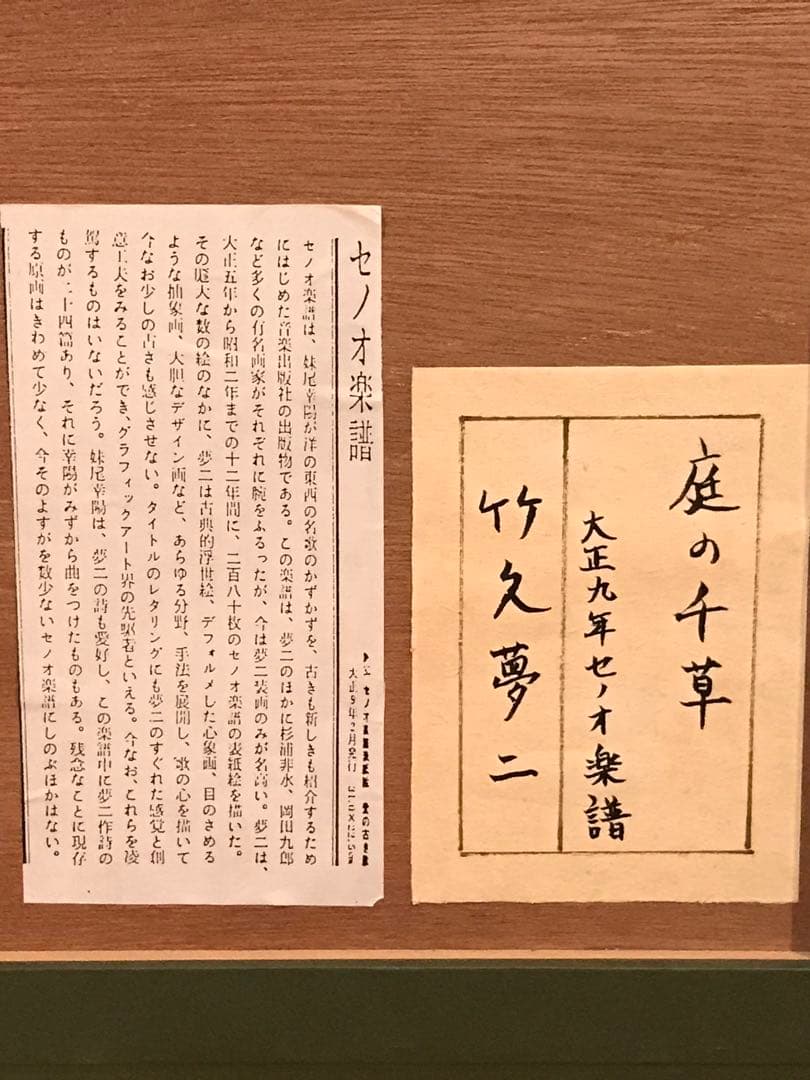 庭の千草
大正九年セノオ楽譜
竹久夢二
セノオ楽譜
大正9年2月発行
セノオ楽譜は、妹尾幸陽が洋の東西の名歌のかずかずを、古きも新しきも紹介するため
にはじめた音楽出版社の出版物である。この楽譜は、夢二のほかに杉浦非水、岡田九郎
など多くの有名画家がそれぞれに腕をふるったが、今は夢二装画のみが名高い。夢二は、
大正五年から昭和二年までの十二年間に、二百八十枚のセノオ楽譜の表紙絵を描いた。
その厖大な数の絵のなかに、夢二は古典的浮世絵、デフォルメした心象画、目のさめる
ような抽象画、大胆なデザイン画など、あらゆる分野、手法を展開し、歌の心を描いて
今なお少しの古さも感じさせない。タイトルのレタリングにも夢二のすぐれた感覚と創
意工夫をみることができ、グラフィックアート界の先駆者といえる。今なお、これらを凌
駕するものはいないだろう。妹尾幸陽は、夢二の詩も愛好し、この楽譜中に夢二作詩の
ものが二十四篇あり、それに幸陽がみずから曲をつけたものもある。残念なことに現存
する原画はきわめて少なく、今そのよすがを数少ないセノオ楽譜にしのぶほかはない。